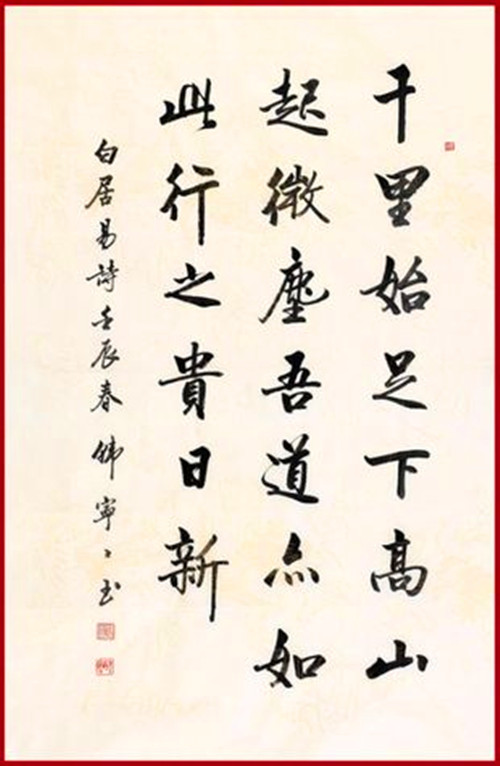 千里始足下高山
起微塵吾道亦如
此行之貴日新
白居易詩壬辰春韩寧寧书